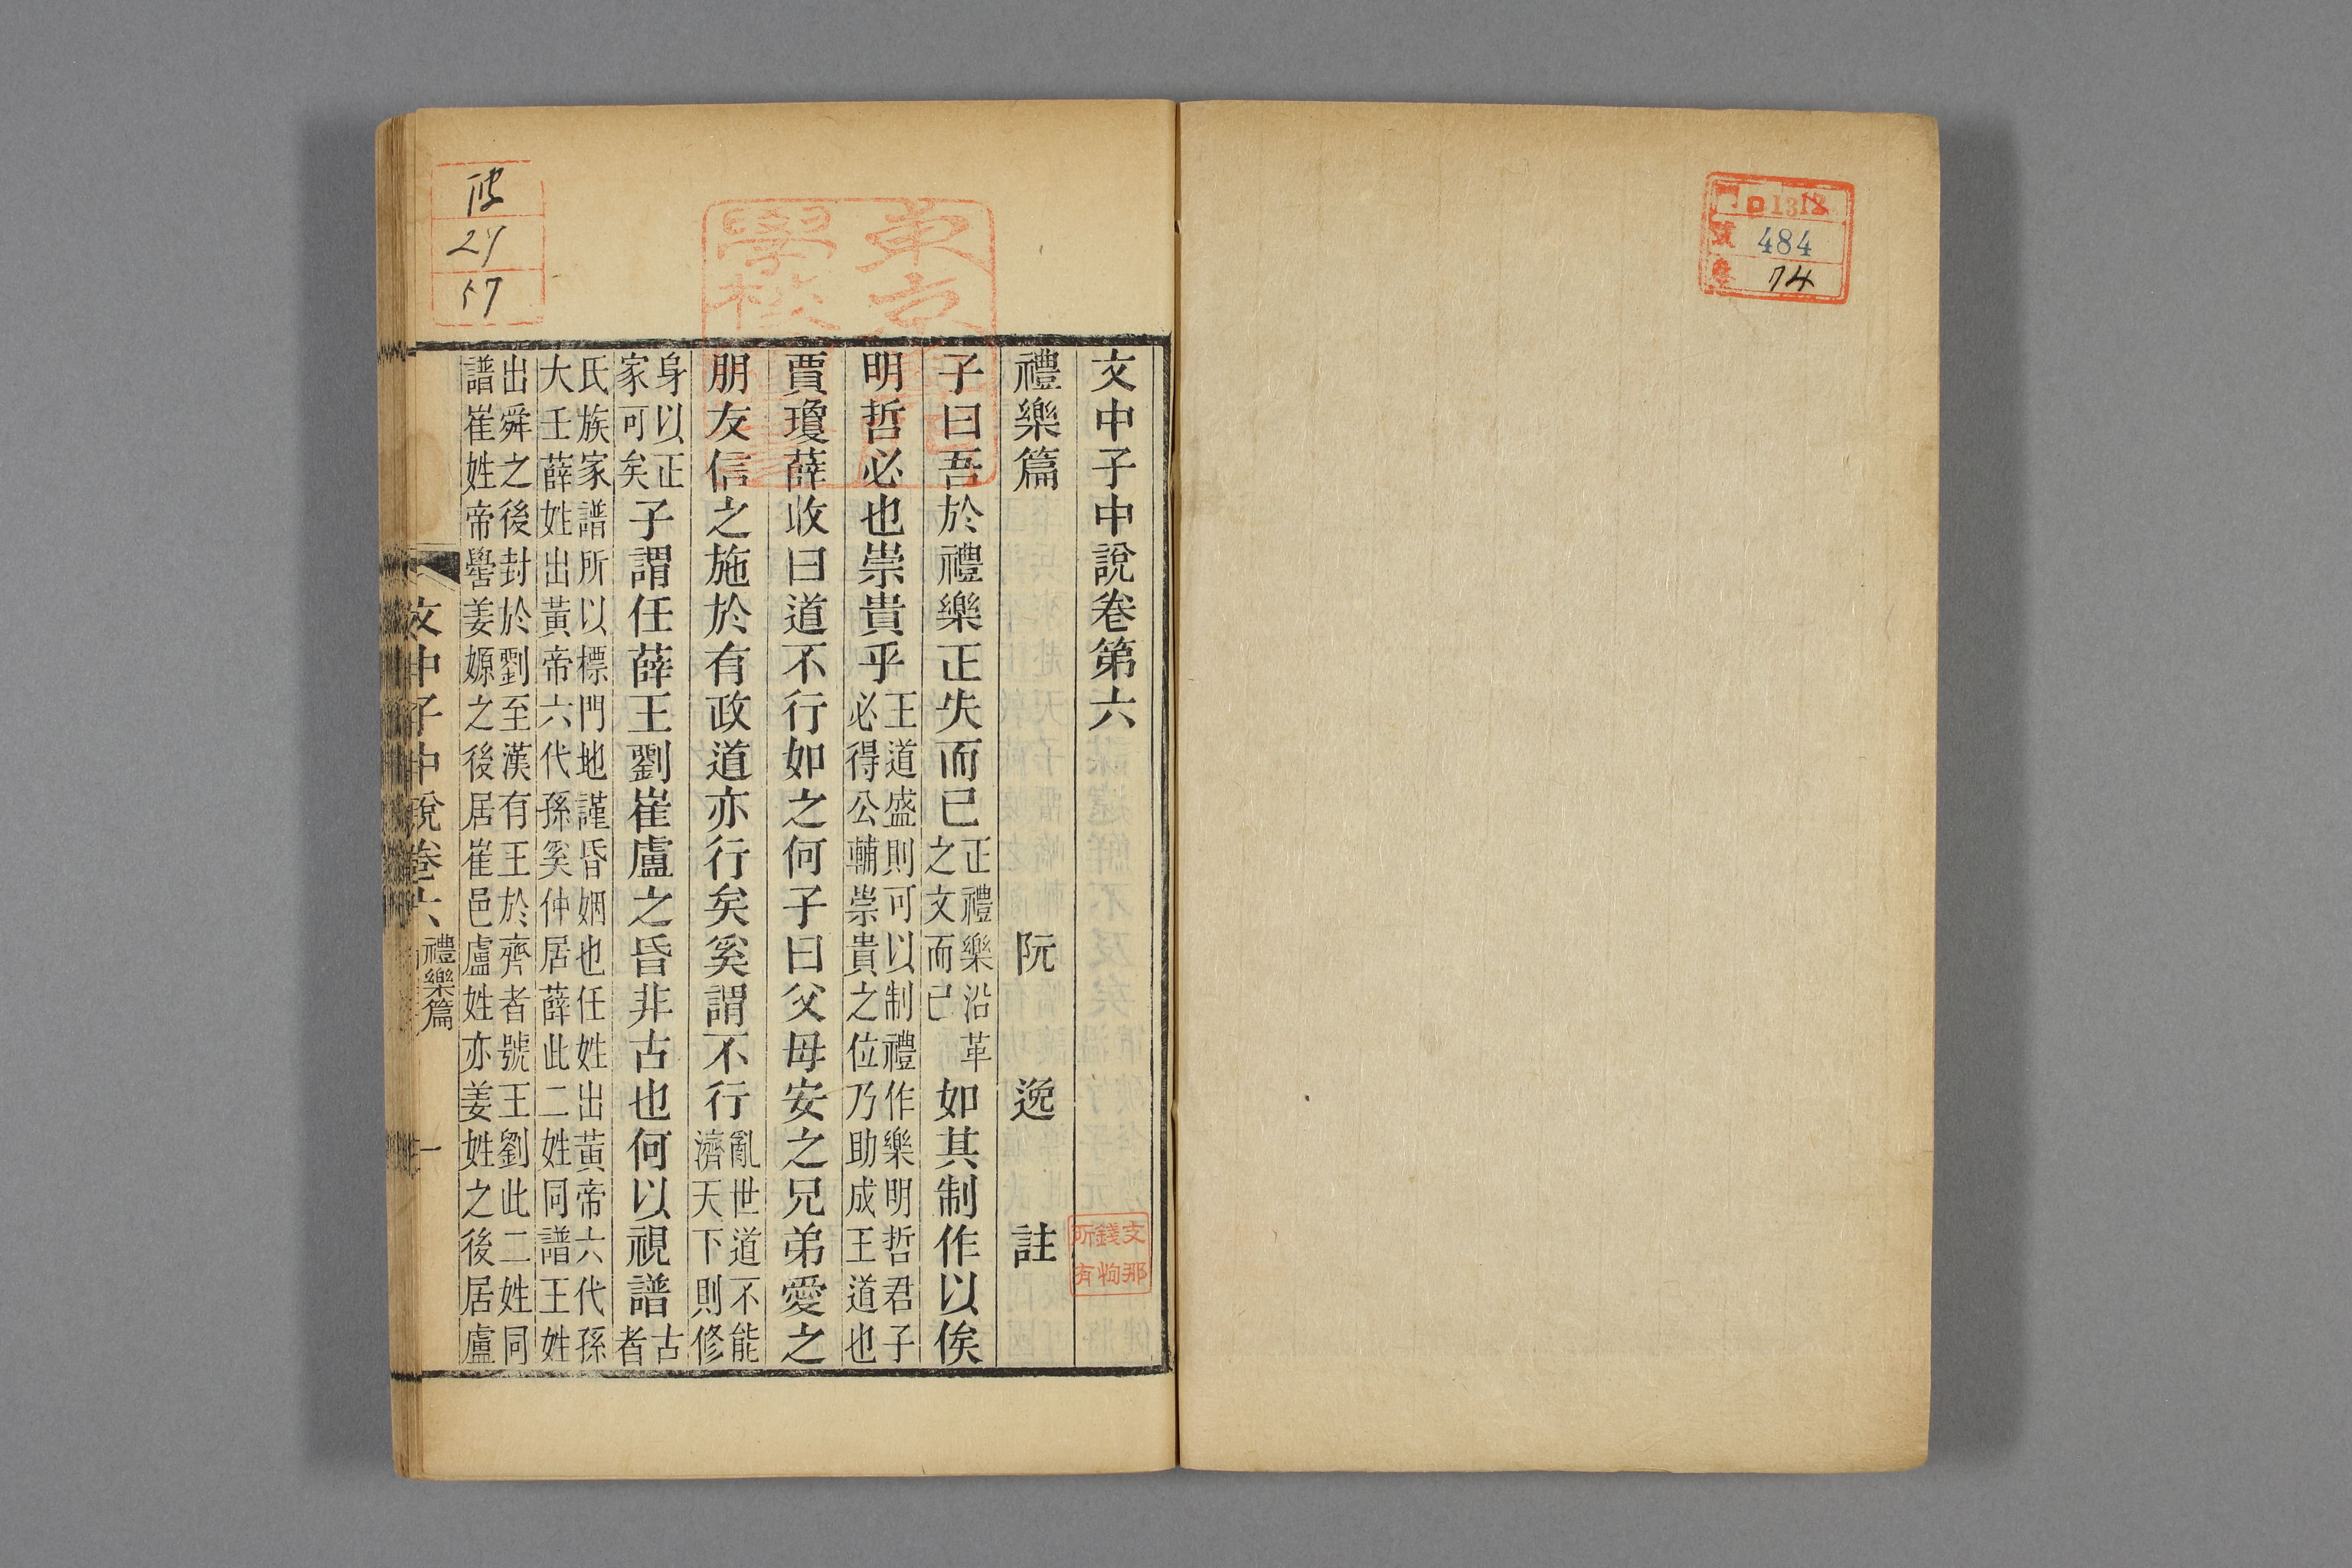 1312
484
74
文中子中說卷第六
禮樂篇 阮 逸 註
子曰吾於禮樂正失而已正禮樂沿革之文而已如其制作以俟
明哲必也崇貴乎王道盛則可以制禮作樂明哲君子必得公輔崇貴之位乃助成王道也
賈瓊薛收曰道不行如之何子曰父母安之兄弟愛之
朋友信之施於有政道亦行矣奚謂不行亂世道不能濟天下則修
身以正家可矣子謂任薛王劉崔盧之昏非古也何以視譜古者
氏族家譜所以標門地謹昏姻也任姓出黃帝六代孫大壬薛姓出黃帝六代孫奚仲居薛此二姓同譜王姓
出舜之後封於劉至漢有王於齊者號王劉此二姓同譜崔姓帝嚳姜嫄之後居崔邑盧姓亦姜姓之後居盧
文中子中說卷六 禮樂篇 一
東京
學校
支那
錢恂
所有
21
57